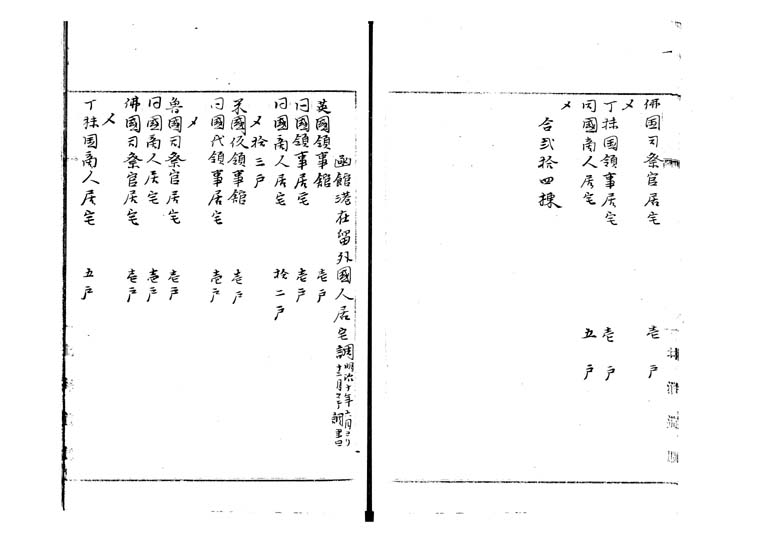 佛国司祭官居宅 壱戸
〆
丁抹国領事居宅 壱戸
同國商人居宅 五戸
〆
合弐拾四棟
函館港在留外國人居宅調 明治十年六月ヨリ
英國領事舘 壱戸
同國領事居宅 壱戸
同國商人居宅 拾二戸
〆拾三戸
米國仮領事舘 壱戸
同國代領事居宅 壱戸
〆
魯國司祭官居宅 壱戸
同國商人居宅 壱戸
佛國司祭官居宅 壱戸
〆
丁抹国商人居宅 五戸